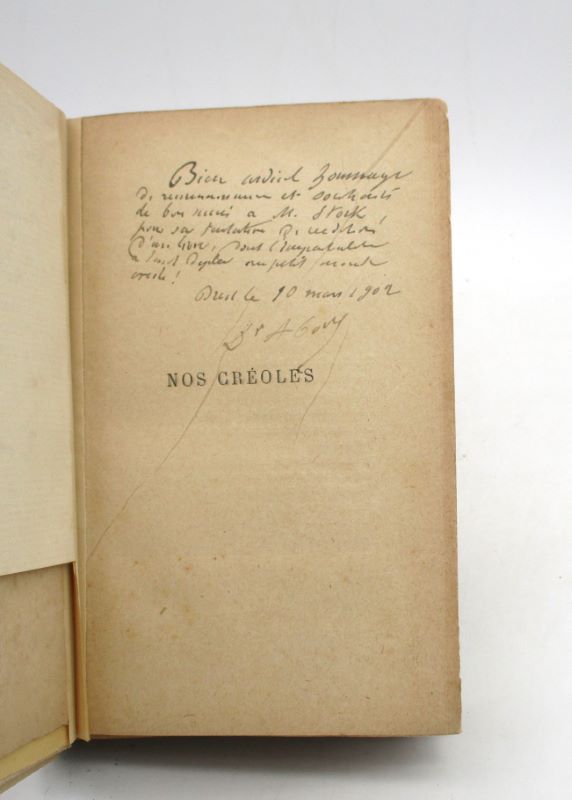 Bien cordial hommage
de reconnaissance et souhaits
de bon succès à M. Stock,
pour sa tentative de réédition
d'un livre, dont l'
a                                    petit monde
créole!
Brest le 10 mars 1902
Dr A Corre
NOS CRÉOLES